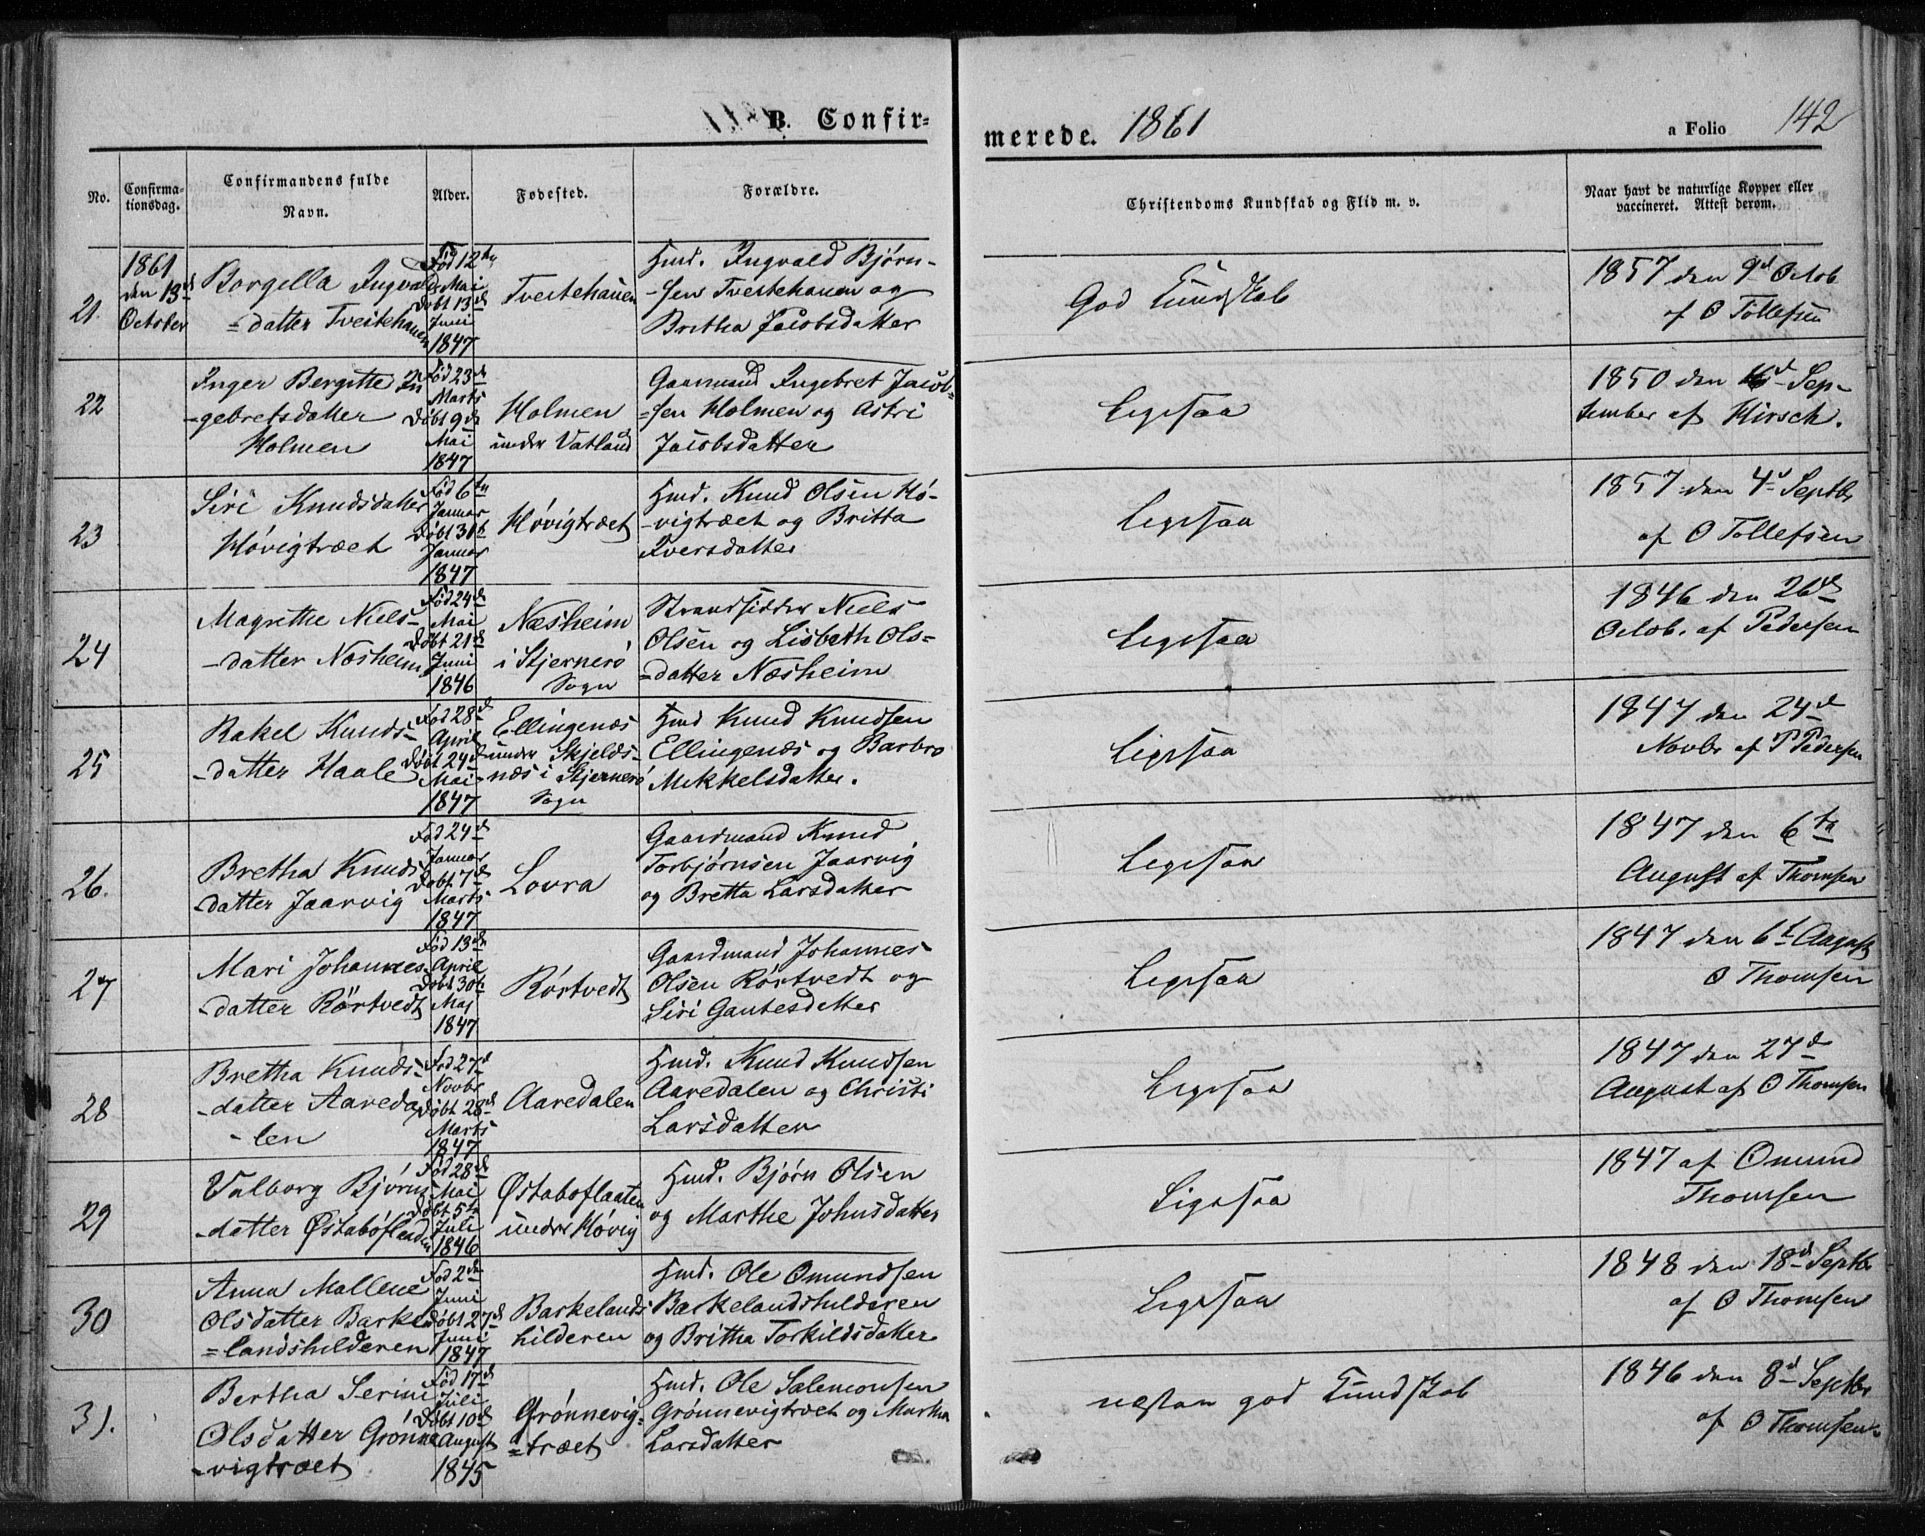 B. Confir=
merede. 1861
a Folio 142
No.
Confirma-
tionsdag.
Confirmandens fulde
Navn.
Alder.
Fødested.
Forældre.
Christendoms Kundskab og Flid m. v.
Naar havt de naturlige Kopper eller
vaccineret. Attest derom.
21.
1861
den 13d
October
Borgilla Ingvalds
=datter Tveitehauen
Fød 12te
Mai
Døbt 13d
Juni
1847
Tveitehauen
Hmd. Ingvald Bjørn-
-sen Tveitehauen og
Britha Jacobsdatter
God Kundskab
1857 den 9d Octob
af O Tollefsen
22
Inger Bergitte In
-gebretsdatter
Holmen
Fød 23d
Marts
Døbt 9de
Mai
1847
Holmen
under Vatland
Gaarmand Ingebret Jacob-
=sen Holmen og Astri
Jacobsdatter
Ligesaa
1850 den Sep-
tember af Hirsch.
23
Siri Knudsdatter
Høvigtræet
Fød 6te
Januar
Døbt 31te
Januar
1847
Høvigtræet
Hmd. Knud Olsen Hø-
-vigtræet og Britta
Iversdatter
Ligesaa
1857 den 4d Septbr
af O Tollefsen
24
Magrethe Niels-
-datter Næsheim
Fød 24d
Mai
Døbt 21d
Juni
1846
Næsheim
i Stjernerø
Sogn
Strandsidder Niels
Olsen og Lisbeth Ols=
=datter Næsheim
Ligesaa
1846 den 26d
Octob. af Pedersen
25
Rakel Knuds-
-datter Haale
Fød 28d
April
Døbt 24d
Mai
1847
Ellingenæs
under Skjelds-
næs i Stjernerø
Sogn
Hmd Knud Knudsen
Ellingenæs og Barbro
Mikkelsdatter.
Ligesaa
1847 den 24d
Novbr af P Pedersen
26.
Bretha Knuds
-datter Jaarvig
Fød 24d
Januar
Døbt 7d
Marts
1847
Lovra
Gaardmand Knud
Torbjørnsen Jaarvig
og Bretta Larsdatter
Ligesaa
1847 den 6te
August af Thomsen
27
Mari Johannes
-datter Rørtvedt
Fød 13de
April
Døbt 30te
Maj
1847
Rørtvedt
Gaardmand Johannes
Olsen Rørtvedt og
Siri Gautesdatter
Ligesaa
1847 den 6t August
O Thomsen
28
Bretha Knuds-
-datter Aareda
-len
Fød 27d
Novbr
Døbt 28d
Marts
1847
Aaredalen
Hmd. Knud Knudsen
Aaredalen og Christi
Larsdatter
Ligesaa
1847 den 27d
August af O Thomsen
29
Valborg Bjørns
-datter Østabøflaaten
Fød 28d
Mai
Døbt 5te
Juli
1846
Østaboflaaten
under Høvig
Hmd. Bjørn Olsen
og Marthe Johnsdatter
Ligesaa
1847 af Omund
Thomsen
30
Anna Mallene
Olsdatter Barke
=landshilderen
Fød 2den
Juni
Døbt 27d
Juni
1847
Barkelands
hilderen
Hmd. Ole Omundsen
Barkelandshilderen
og Britha Torkildsdatter
Ligesaa
1848 den 18d Septbr
af O Thomsen
31.
Bertha Serine
Olsdatter Grønne
-vigtræet
Fød 17d
Juli
Døbt 10d
August
1845
Grønnevig-
=træet
Hmd. Ole Salemonsen
Grønnevigtræet og Martha
Larsdatter
næsten god Kundskab
1846 den 8d Septbr
af O Thomsen.